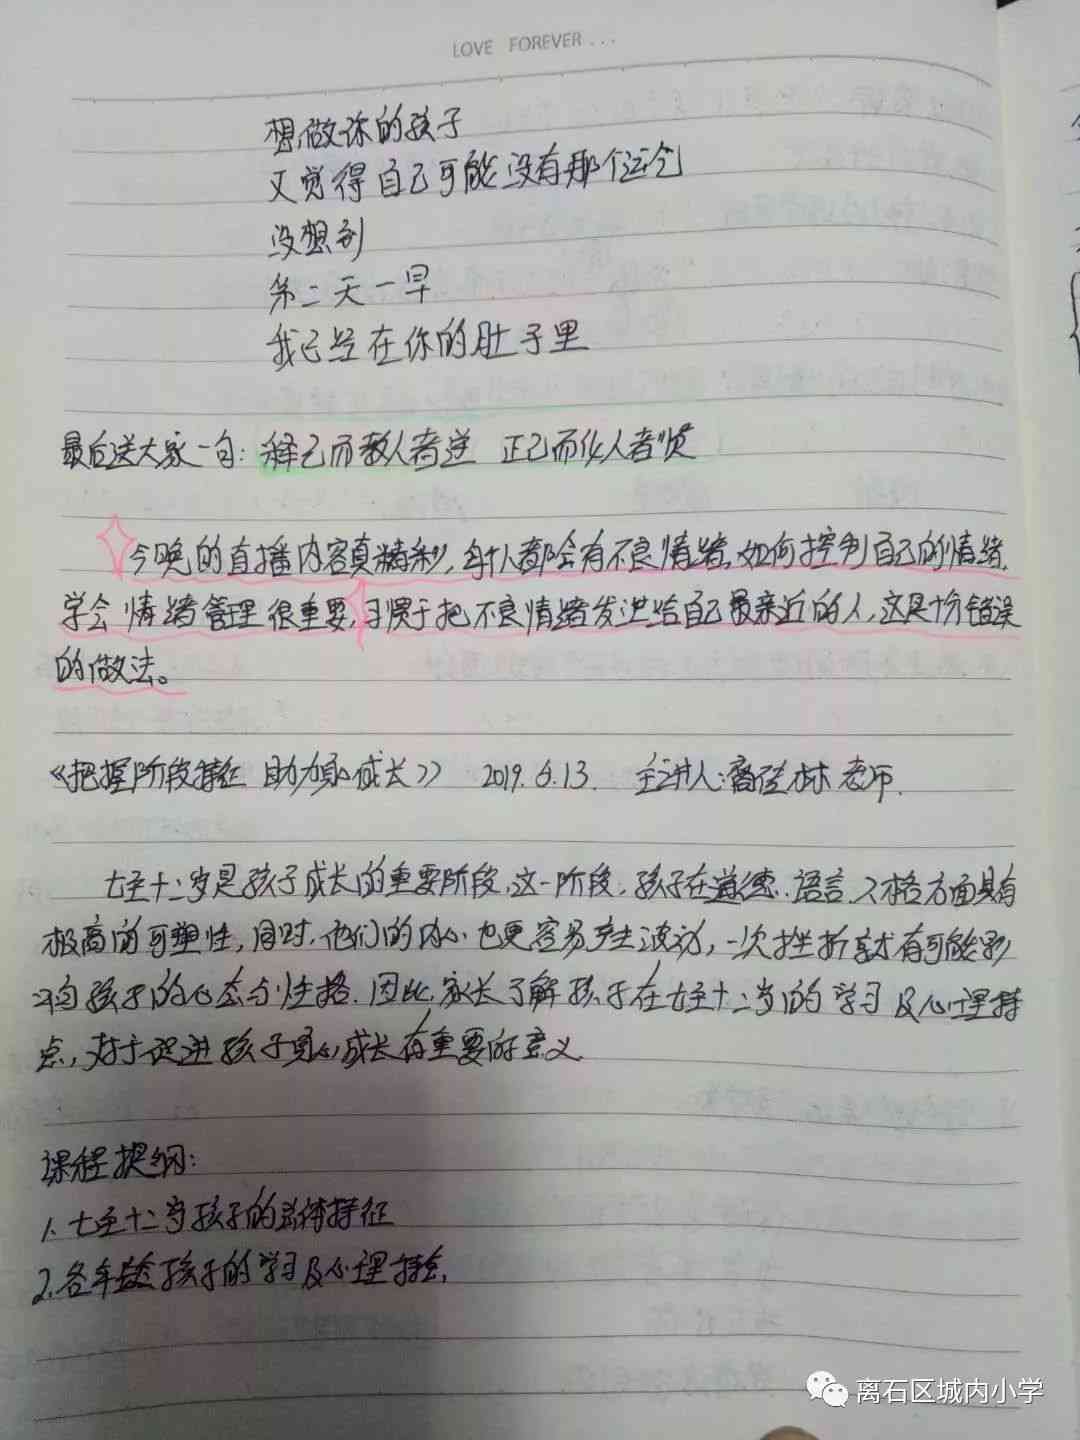 LOVE FOREVER...
想做你的孩子
又觉得自己可能没有那个运气
没想到
第二天一早
我已经在你的肚子里
最后送大家一句：释己而教人者逆 正己而化人者顺
今晚的直播内容真精彩，每个人都会有不良情绪，如何控制自己的情绪，
学会情绪管理很重要，习惯于把不良情绪发泄给自己最亲近的人，这是十分错误
的做法。
《把握阶段特征 助力身心成长》 2019.6.13. 主讲人：佳林老师.
七至十二岁是孩子成长的重要阶段，这一阶段，孩子在道德、语言、人格方面具有
极高的可塑性，同时，他们的内心也更容易产生波动，一次挫折就有可能影
响孩子的心态与性格.因此，家长了解孩子在七至十二岁的学习及心理特
点，对于促进孩子身心成长有重要的意义.
课程提纲：
1.七至十二岁孩子的总体特征
2.各年龄孩子的学习及心理特点.
离石区城内小学